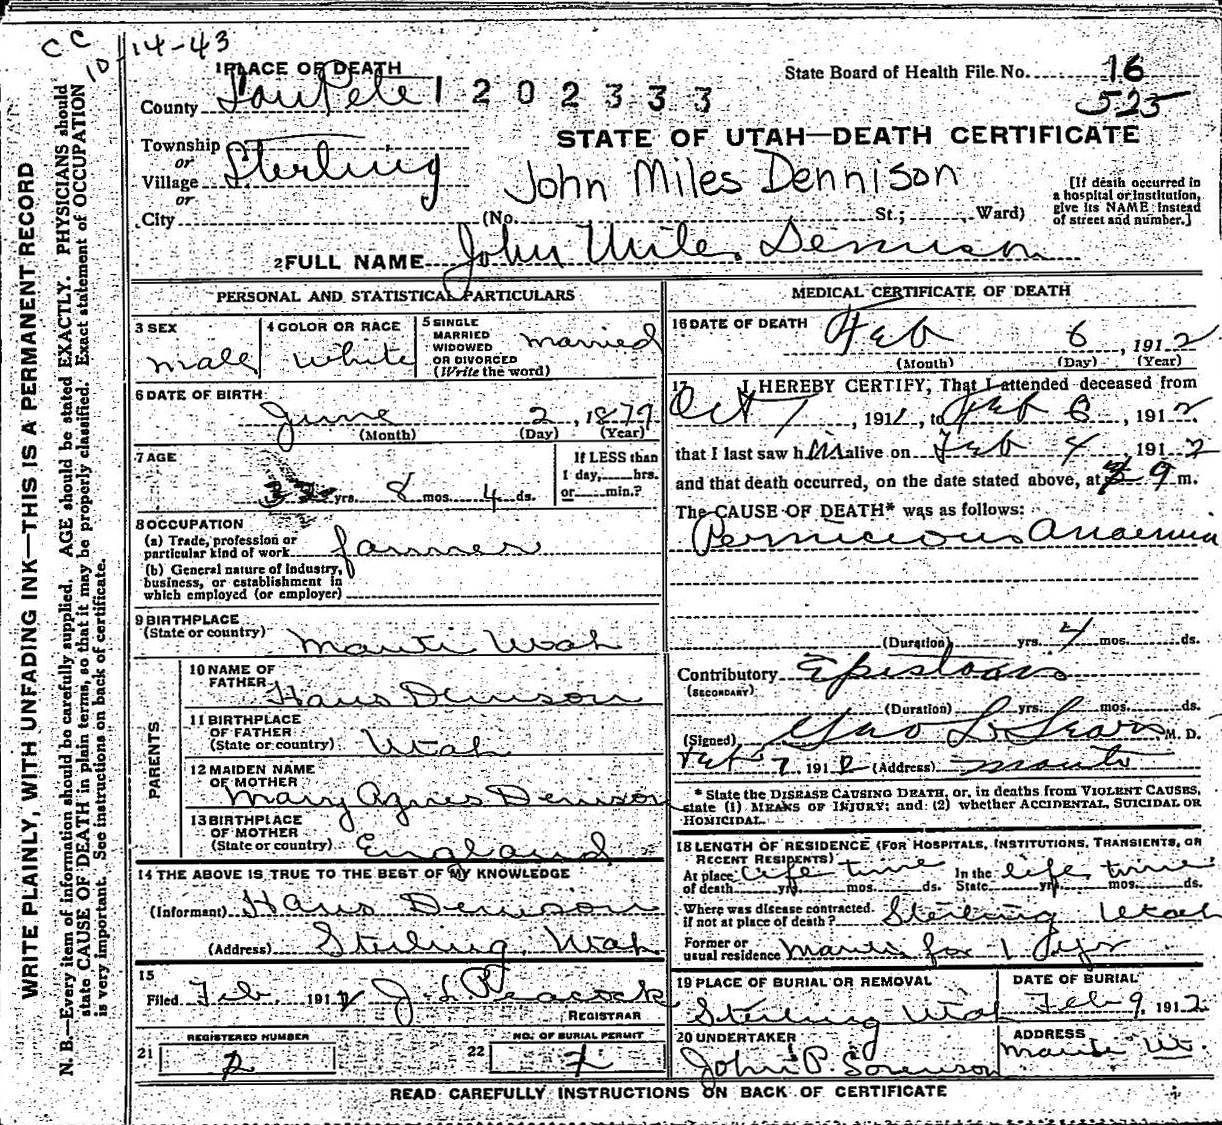 CC
10-14-43
WRITE PLAINLY, WITH UNFADING INK—THIS IS A PERMANENT RECORD
N. B.—Every item of information should be carefully supplied. AGE should be stated EXACTLY. PHYSICIANS should
state CAUSE OF DEATH in plain terms, so that it may be properly classified. Exact statement of OCCUPATION
is very important. See instructions on back of certificate.
1 PLACE OF DEATH
County SanPete
1202333
State Board of Health File No. 16
525
STATE OF UTAH—DEATH CERTIFICATE
Township
or
Village Sterling
or
John Miles Dennison
[If death occurred in
a hospital or institution,
give its NAME instead
of street and number.]
City (No. St.; Ward)
2 FULL NAME John Mile Dennison
PERSONAL AND STATISTICAL PARTICULARS
3 SEX
male
4 COLOR OR RACE
white
5 SINGLE
MARRIED
WIDOWED
OR DIVORCED
(Write the word)
married
6 DATE OF BIRTH
June 2, 1877
(Month) (Day) (Year)
7 AGE
yrs. 8 mos. 4 ds.
If LESS than
1 day, hrs.
or min.?
8 OCCUPATION
(a) Trade, profession or
particular kind of work farmer
(b) General nature of industry,
business, or establishment in
which employed (or employer)
9 BIRTHPLACE
(State or country) Manti Utah
PARENTS
10 NAME OF
FATHER Hans Denison
11 BIRTHPLACE
OF FATHER
(State or country) Utah
12 MAIDEN NAME
OF MOTHER
Mary Agnes Denison
13 BIRTHPLACE
OF MOTHER
(State or country) England
14 THE ABOVE IS TRUE TO THE BEST OF MY KNOWLEDGE
(Informant) Hans Denison
(Address) Sterling, Utah
15
Filed Feb. 1912 J. L. Peacock
REGISTRAR
REGISTERED NUMBER
21 2
NO. OF BURIAL PERMIT
22
MEDICAL CERTIFICATE OF DEATH
16 DATE OF DEATH
Feb 6, 1912
(Month) (Day) (Year)
17 I HEREBY CERTIFY, That I attended deceased from
Oct 1, 1911, to Feb 6, 1912
that I last saw him alive on Feb 4 1912
and that death occurred, on the date stated above, at 9 m.
The CAUSE OF DEATH* was as follows:
Pernicious Anaemia
(Duration) yrs. 4 mos. ds.
Contributory
(SECONDARY)
(Duration) yrs. mos. ds.
(Signed) Geo L. Sears, M. D.
Feb 7, 1912 (Address) Manti
* State the DISEASE CAUSING DEATH, or, in deaths from VIOLENT CAUSES,
state (1) MEANS OF INJURY; and (2) whether ACCIDENTAL, SUICIDAL OR
HOMICIDAL.
18 LENGTH OF RESIDENCE (FOR HOSPITALS, INSTITUTIONS, TRANSIENTS, OR
RECENT RESIDENTS)
At place
of death life time yrs. mos. ds.
In the
State life time yrs. mos. ds.
Where was disease contracted
if not at place of death? Sterling Utah
Former or
usual residence Manti for 1
19 PLACE OF BURIAL OR REMOVAL
Sterling Utah
DATE OF BURIAL
Feb 9, 1912
20 UNDERTAKER
John P. Sorenson
ADDRESS
Manti Ut.
READ CAREFULLY INSTRUCTIONS ON BACK OF CERTIFICATE